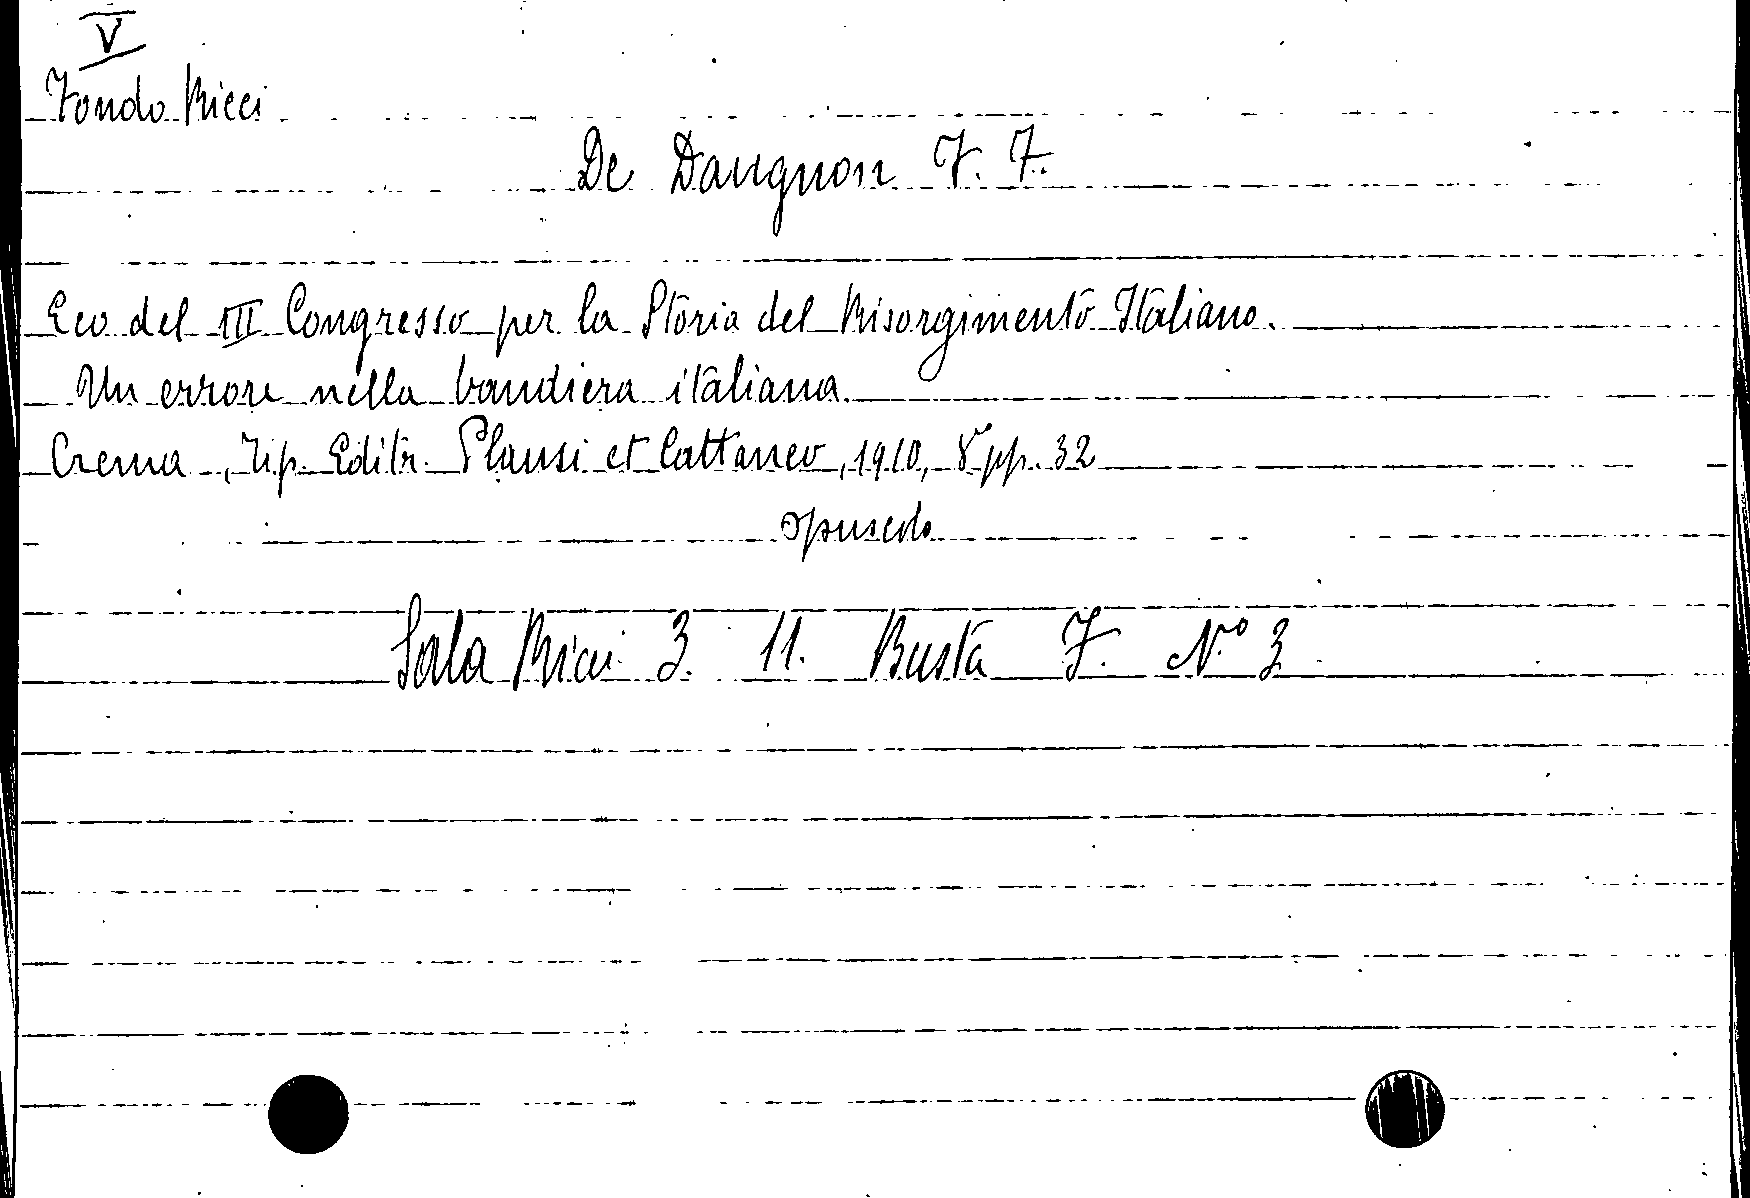 V
Fondo Ricci
De Daugnon F. F.
Eco del III Congresso per la Storia del Risorgimento Italiano.
Un errore nella bandiera italiana.
Crema, Tip. Editr. Plausi et Cattaneo, 1910, 8° pp. 32
opuscolo
Sala Ricci 3. 11. Busta F. N.° 3